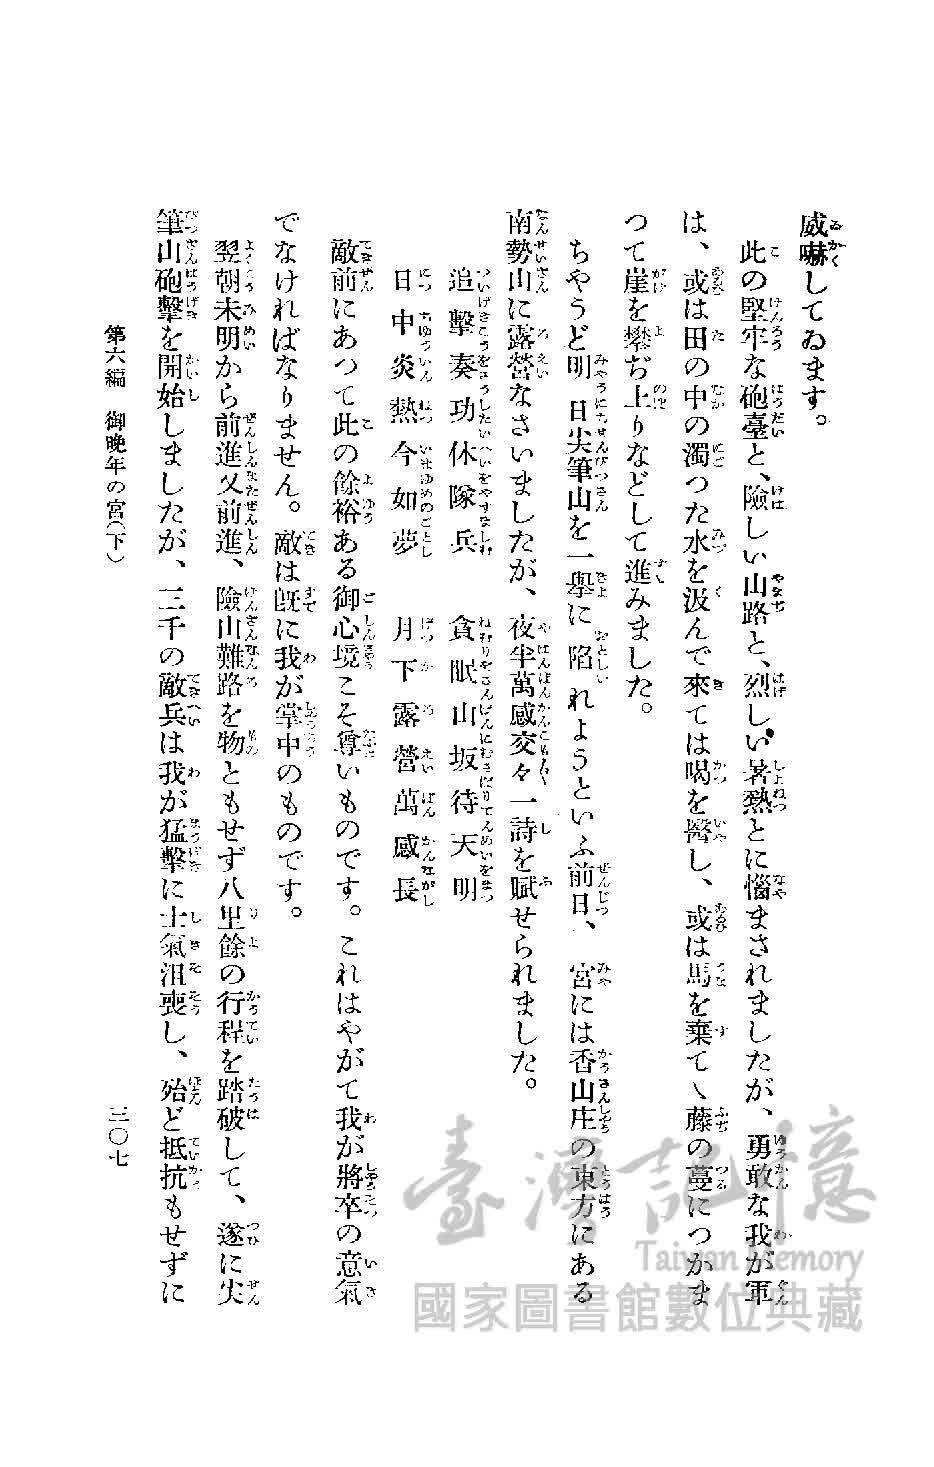 威嚇してゐます。
此の堅牢な砲臺と、險しい山路と、烈しい暑熱とに惱まされましたが、勇敢な我が軍
は、或は田の中の濁つた水を汲んで來ては喝を醫し、或は馬を棄てゝ藤の蔓につかま
つて崖を攀ぢ上りなどして進みました。
ちやうど明日尖筆山を一擧に陷れようといふ前日、宮には香山庄の東方にある
南勢山に露營なさいましたが、夜半萬感交々一詩を賦せられました。
追擊奏功休隊兵　貪眠山坂待天明
日中炎熱今如夢　月下露營萬感長
敵前にあつて此の餘裕ある御心境こそ尊いものです。これはやがて我が將卒の意氣
でなければなりません。敵は既に我が掌中のものです。
翌朝未明から前進又前進、險山難路を物ともせず八里餘の行程を踏破して、遂に尖
筆山砲擊を開始しましたが、三千の敵兵は我が猛擊に士氣沮喪し、殆ど抵抗もせずに
第六編　御晩年の宮(下)
三〇七
臺灣記憶
Taiwan Memory
國家圖書館數位典藏